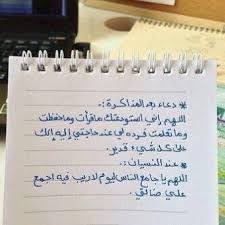 * دعاء بعد المذاكرة :.
اللهم إني استودعتك ماقرأت وماحفظت
وماتعلمت فرده لي عند حاجتي إليه إنك
على كل شيء قدير.
* عند النسيان :.
اللهم يا جامع الناس ليوم لاريب فيه اجمع
علي ضالتي.